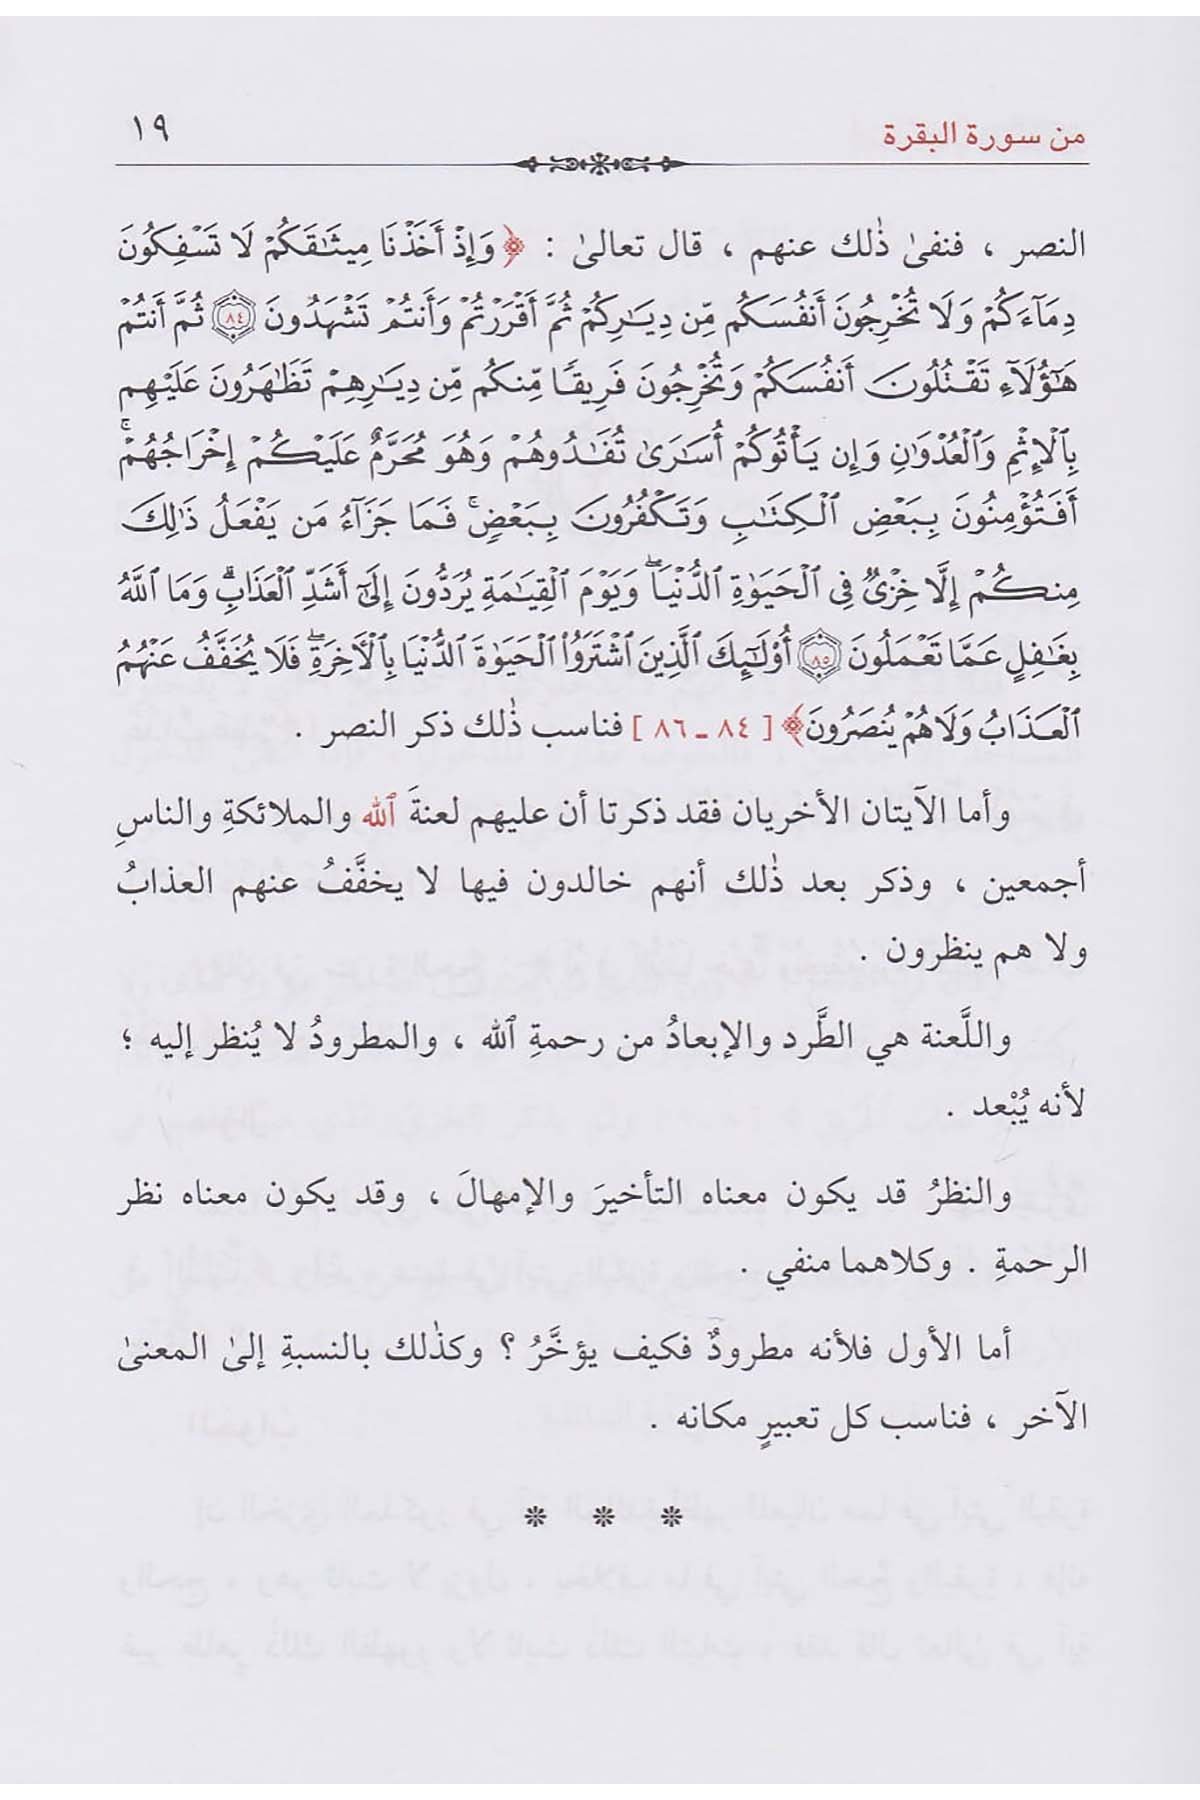 من سورة البقرة ١٩
النصر ، فنفىٰ ذٰلك عنهم ، قال تعالىٰ : ﴿ وَإِذْ أَخَذْنَا مِيثَٰقَكُمْ لَا تَسْفِكُونَ
دِمَآءَكُمْ وَلَا تُخْرِجُونَ أَنفُسَكُم مِّن دِيَٰرِكُمْ ثُمَّ أَقْرَرْتُمْ وَأَنتُمْ تَشْهَدُونَ ۝٨٤ ثُمَّ أَنتُمْ
هَٰٓؤُلَآءِ تَقْتُلُونَ أَنفُسَكُمْ وَتُخْرِجُونَ فَرِيقًا مِّنكُم مِّن دِيَٰرِهِمْ تَظَٰهَرُونَ عَلَيْهِم
بِٱلْإِثْمِ وَٱلْعُدْوَٰنِ وَإِن يَأْتُوكُمْ أُسَٰرَىٰ تُفَٰدُوهُمْ وَهُوَ مُحَرَّمٌ عَلَيْكُمْ إِخْرَاجُهُمْ ۚ
أَفَتُؤْمِنُونَ بِبَعْضِ ٱلْكِتَٰبِ وَتَكْفُرُونَ بِبَعْضٍ ۚ فَمَا جَزَآءُ مَن يَفْعَلُ ذَٰلِكَ
مِنكُمْ إِلَّا خِزْىٌ فِى ٱلْحَيَوٰةِ ٱلدُّنْيَا ۖ وَيَوْمَ ٱلْقِيَٰمَةِ يُرَدُّونَ إِلَىٰٓ أَشَدِّ ٱلْعَذَابِ ۗ وَمَا ٱللَّهُ
بِغَٰفِلٍ عَمَّا تَعْمَلُونَ ۝٨٥ أُوْلَٰٓئِكَ ٱلَّذِينَ ٱشْتَرَوُاْ ٱلْحَيَوٰةَ ٱلدُّنْيَا بِٱلْأَخِرَةِ ۖ فَلَا يُخَفَّفُ عَنْهُمُ
ٱلْعَذَابُ وَلَا هُمْ يُنصَرُونَ ﴾ [ ٨٤ ـ ٨٦ ] فناسب ذٰلك ذكر النصر .
وأما الآيتان الأخريان فقد ذكرتا أن عليهم لعنةَ ٱلله والملائكةِ والناسِ
أجمعين ، وذكر بعد ذٰلك أنهم خالدون فيها لا يخفَّفُ عنهم العذابُ
ولا هم ينظرون .
واللَّعنة هي الطَّرد والإبعادُ من رحمةِ ٱلله ، والمطرودُ لا يُنظر إليه ؛
لأنه يُبْعد .
والنظرُ قد يكون معناه التأخيرَ والإمهالَ ، وقد يكون معناه نظر
الرحمةِ . وكلاهما منفي .
أما الأول فلأنه مطرودٌ فكيف يؤخَّرُ ؟ وكذٰلك بالنسبةِ إلىٰ المعنىٰ
الآخر ، فناسب كل تعبيرٍ مكانه .
* * *